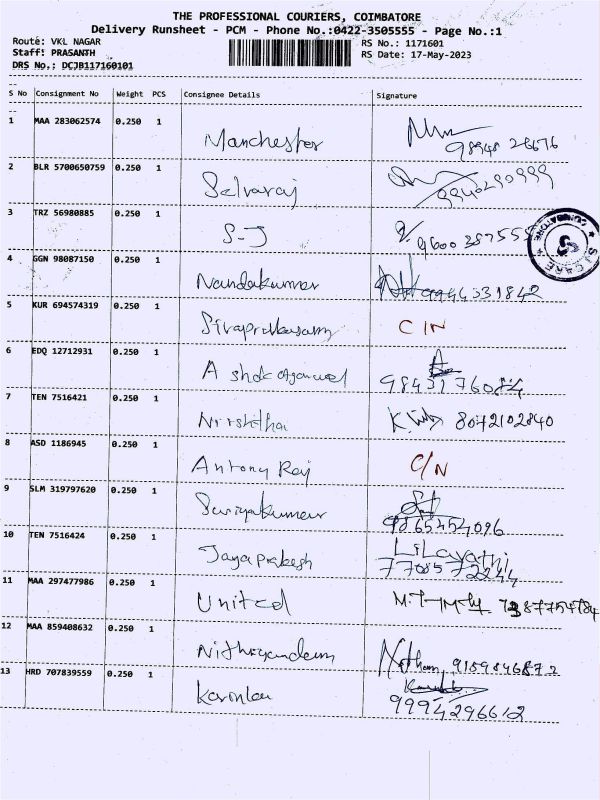 THE PROFESSIONAL COURIERS, COIMBATORE
Delivery Runsheet - PCM - Phone No.:0422-3505555 - Page No.:1
Route: VKL NAGAR
RS No.: 1171601
Staff: PRASANTH
RS Date: 17-May-2023
DRS No.: DCJB117160101
S No Consignment No Weight PCS Consignee Details Signature
1 MAA 283062574 0.250 1 Manchester
98948 28676
2 BLR 5700650759 0.250 1 Selvaraj
3 TRZ 56980885 0.250 1 S-J
COIMBATORE
SJ CARE
4 GGN 98087150 0.250 1 Nandakumar 9944331842
5 KUR 694574319 0.250 1 Sivaprakasam C/N
6 EDQ 12712931 0.250 1 Ashok Agarwal
9843176084
7 TEN 7516421 0.250 1 8072102840
8 ASD 1186945 0.250 1 Antony Raj C/N
9 SLM 319797620 0.250 1 Suriyakumar
9865454096
10 TEN 7516424 0.250 1 Jayaprakash Lilavathi
7708572244
11 MAA 297477986 0.250 1 United
12 MAA 859408632 0.250 1 9159846872
13 HRD 707839559 0.250 1
9994296612